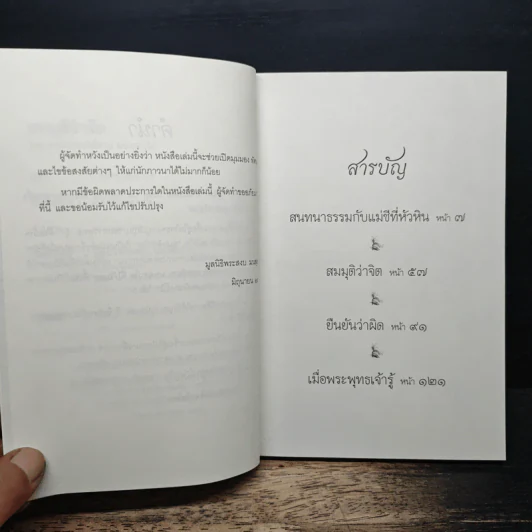 ผู้จัดทำหวังเป็นอย่างยิ่งว่า หนังสือเล่มนี้จะช่วยเปิดมุมมอง
และไขข้อสงสัยต่างๆ ให้แก่นักภาวนาได้ไม่มากก็น้อย
หากมีข้อผิดพลาดประการใดในหนังสือเล่มนี้ ผู้จัดทำขออภัย
ที่นี้ และขอน้อมรับไว้แก้ไขปรับปรุง
มูลนิธิพระสงบ
มิถุนายน
สารบัญ
สนทนาธรรมกับแม่ชีที่หัวหิน หน้า ๗
สมมุติว่าจิต หน้า ๕๗
ยืนยันว่าผิด หน้า ๙๑
เมื่อพระพุทธเจ้ารู้ หน้า ๑๒๑